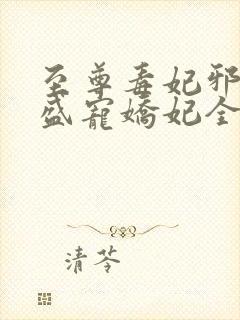 至尊毒妃邪
盛寵嬌妃全
清苓